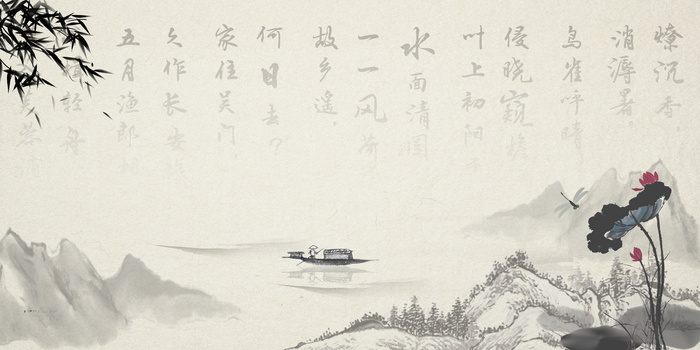 燎沉香,
消溽暑。
鸟雀呼晴
侵晓窺檐
叶上初阳
水面清圆
一一风荷
故乡遥,
何日去?
家住吴门,
久作长安
五月渔郎相
轻舟
芙蓉